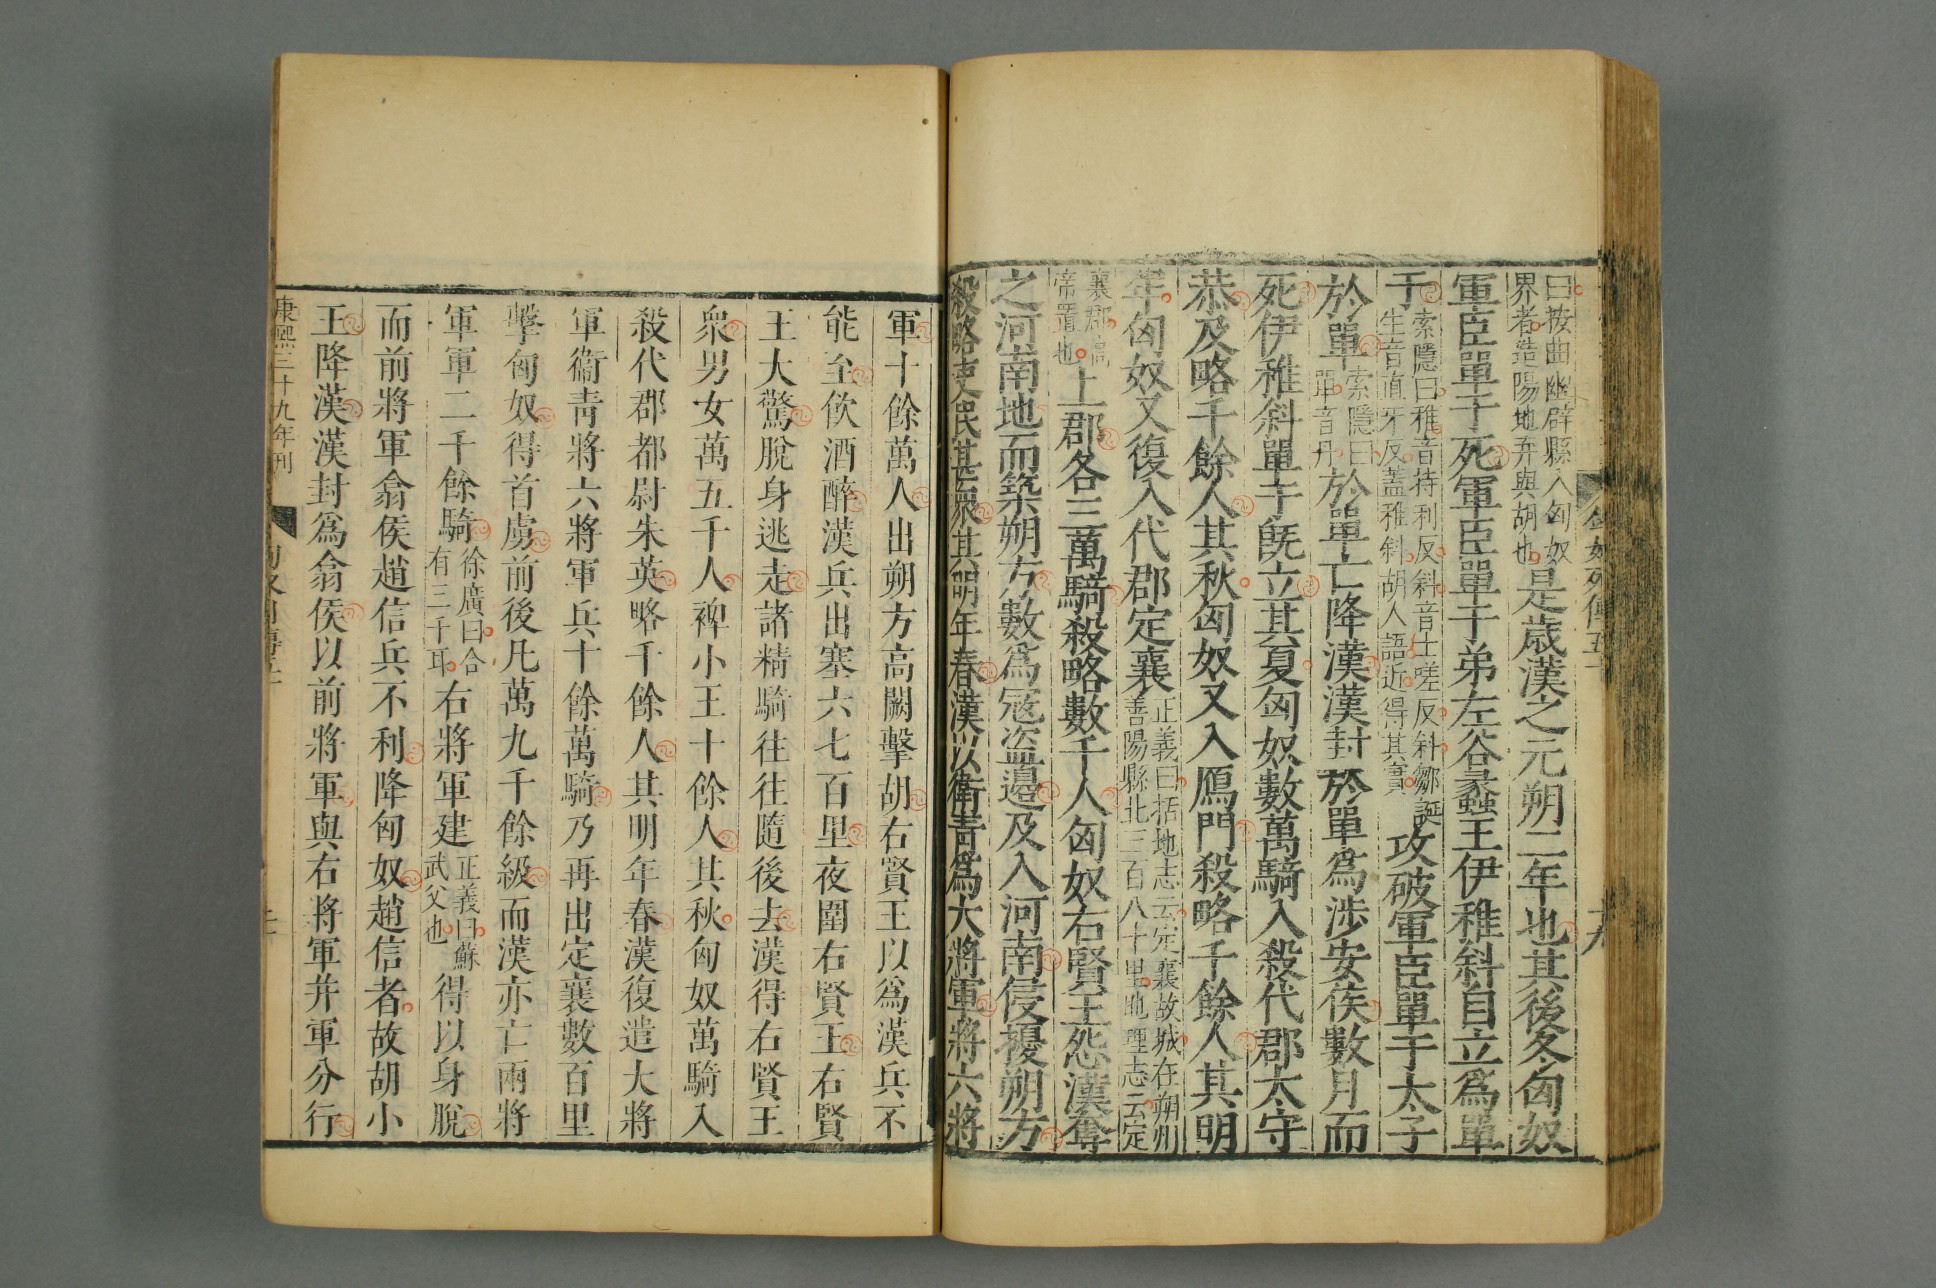 曰按曲幽辟縣入匈奴
界者造陽地弃與胡也
是歲漢之元朔二年也其後冬匈奴
軍臣單于死軍臣單于弟左谷蠡王伊稚斜自立爲單
于
索隱曰稚音持利反斜音士嗟反斜鄒誕
生音直牙反蓋稚斜胡人語近得其實
攻破軍臣單于太子
於單
索隱曰
單音丹
於單亡降漢漢封於單爲涉安侯數月而
死伊稚斜單于旣立其夏匈奴數萬騎入殺代郡太守
恭及略千餘人其秋匈奴又入鴈門殺略千餘人其明
年匈奴又復入代郡定襄
正義曰括地志云定襄故城在朔州
善陽縣北三百八十里地理志云定
襄郡高
帝置也
上郡各三萬騎殺略數千人匈奴右賢王怨漢奪
之河南地而築朔方數爲寇盗邊及入河南侵擾朔方
殺略吏民其衆其明年春漢以衛青爲大將軍將六將
軍十餘萬人出朔方高闕擊胡右賢王以爲漢兵不
能至飲酒醉漢兵出塞六七百里夜圍右賢王右賢
王大驚脫身逃走諸精騎往往隨後去漢得右賢王
衆男女萬五千人裨小王十餘人其秋匈奴萬騎入
殺代郡都尉朱英略千餘人其明年春漢復遣大將
軍衞青將六將軍兵十餘萬騎乃再出定襄數百里
擊匈奴得首虜前後凡萬九千餘級而漢亦亡兩將
軍軍二千餘騎
徐廣曰合
有三千耳
右將軍建
正義曰蘇
武父也
得以身脫
而前將軍翕侯趙信兵不利降匈奴趙信者故胡小
王降漢漢封爲翕侯以前將軍與右將軍并軍分行
康熙三十九年刊